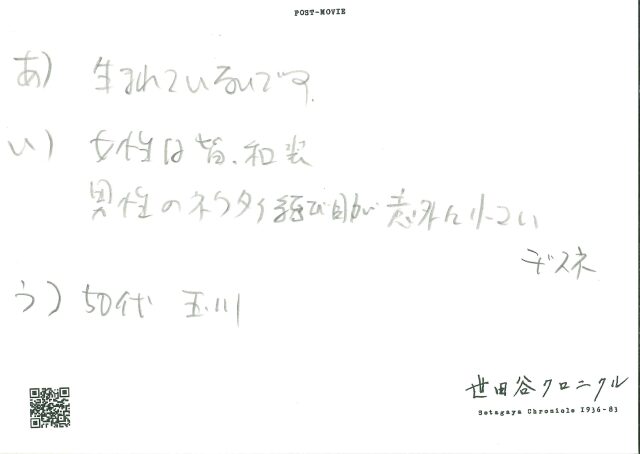 POST-MOVIE
あ) 生まれているいです。
い) 女性は皆、和装
男性のネクタイ結び目が意外に小さい
デスネ
う) 50代 玉川
世田谷クロニクル
Setagaya Chronicle 1936-83